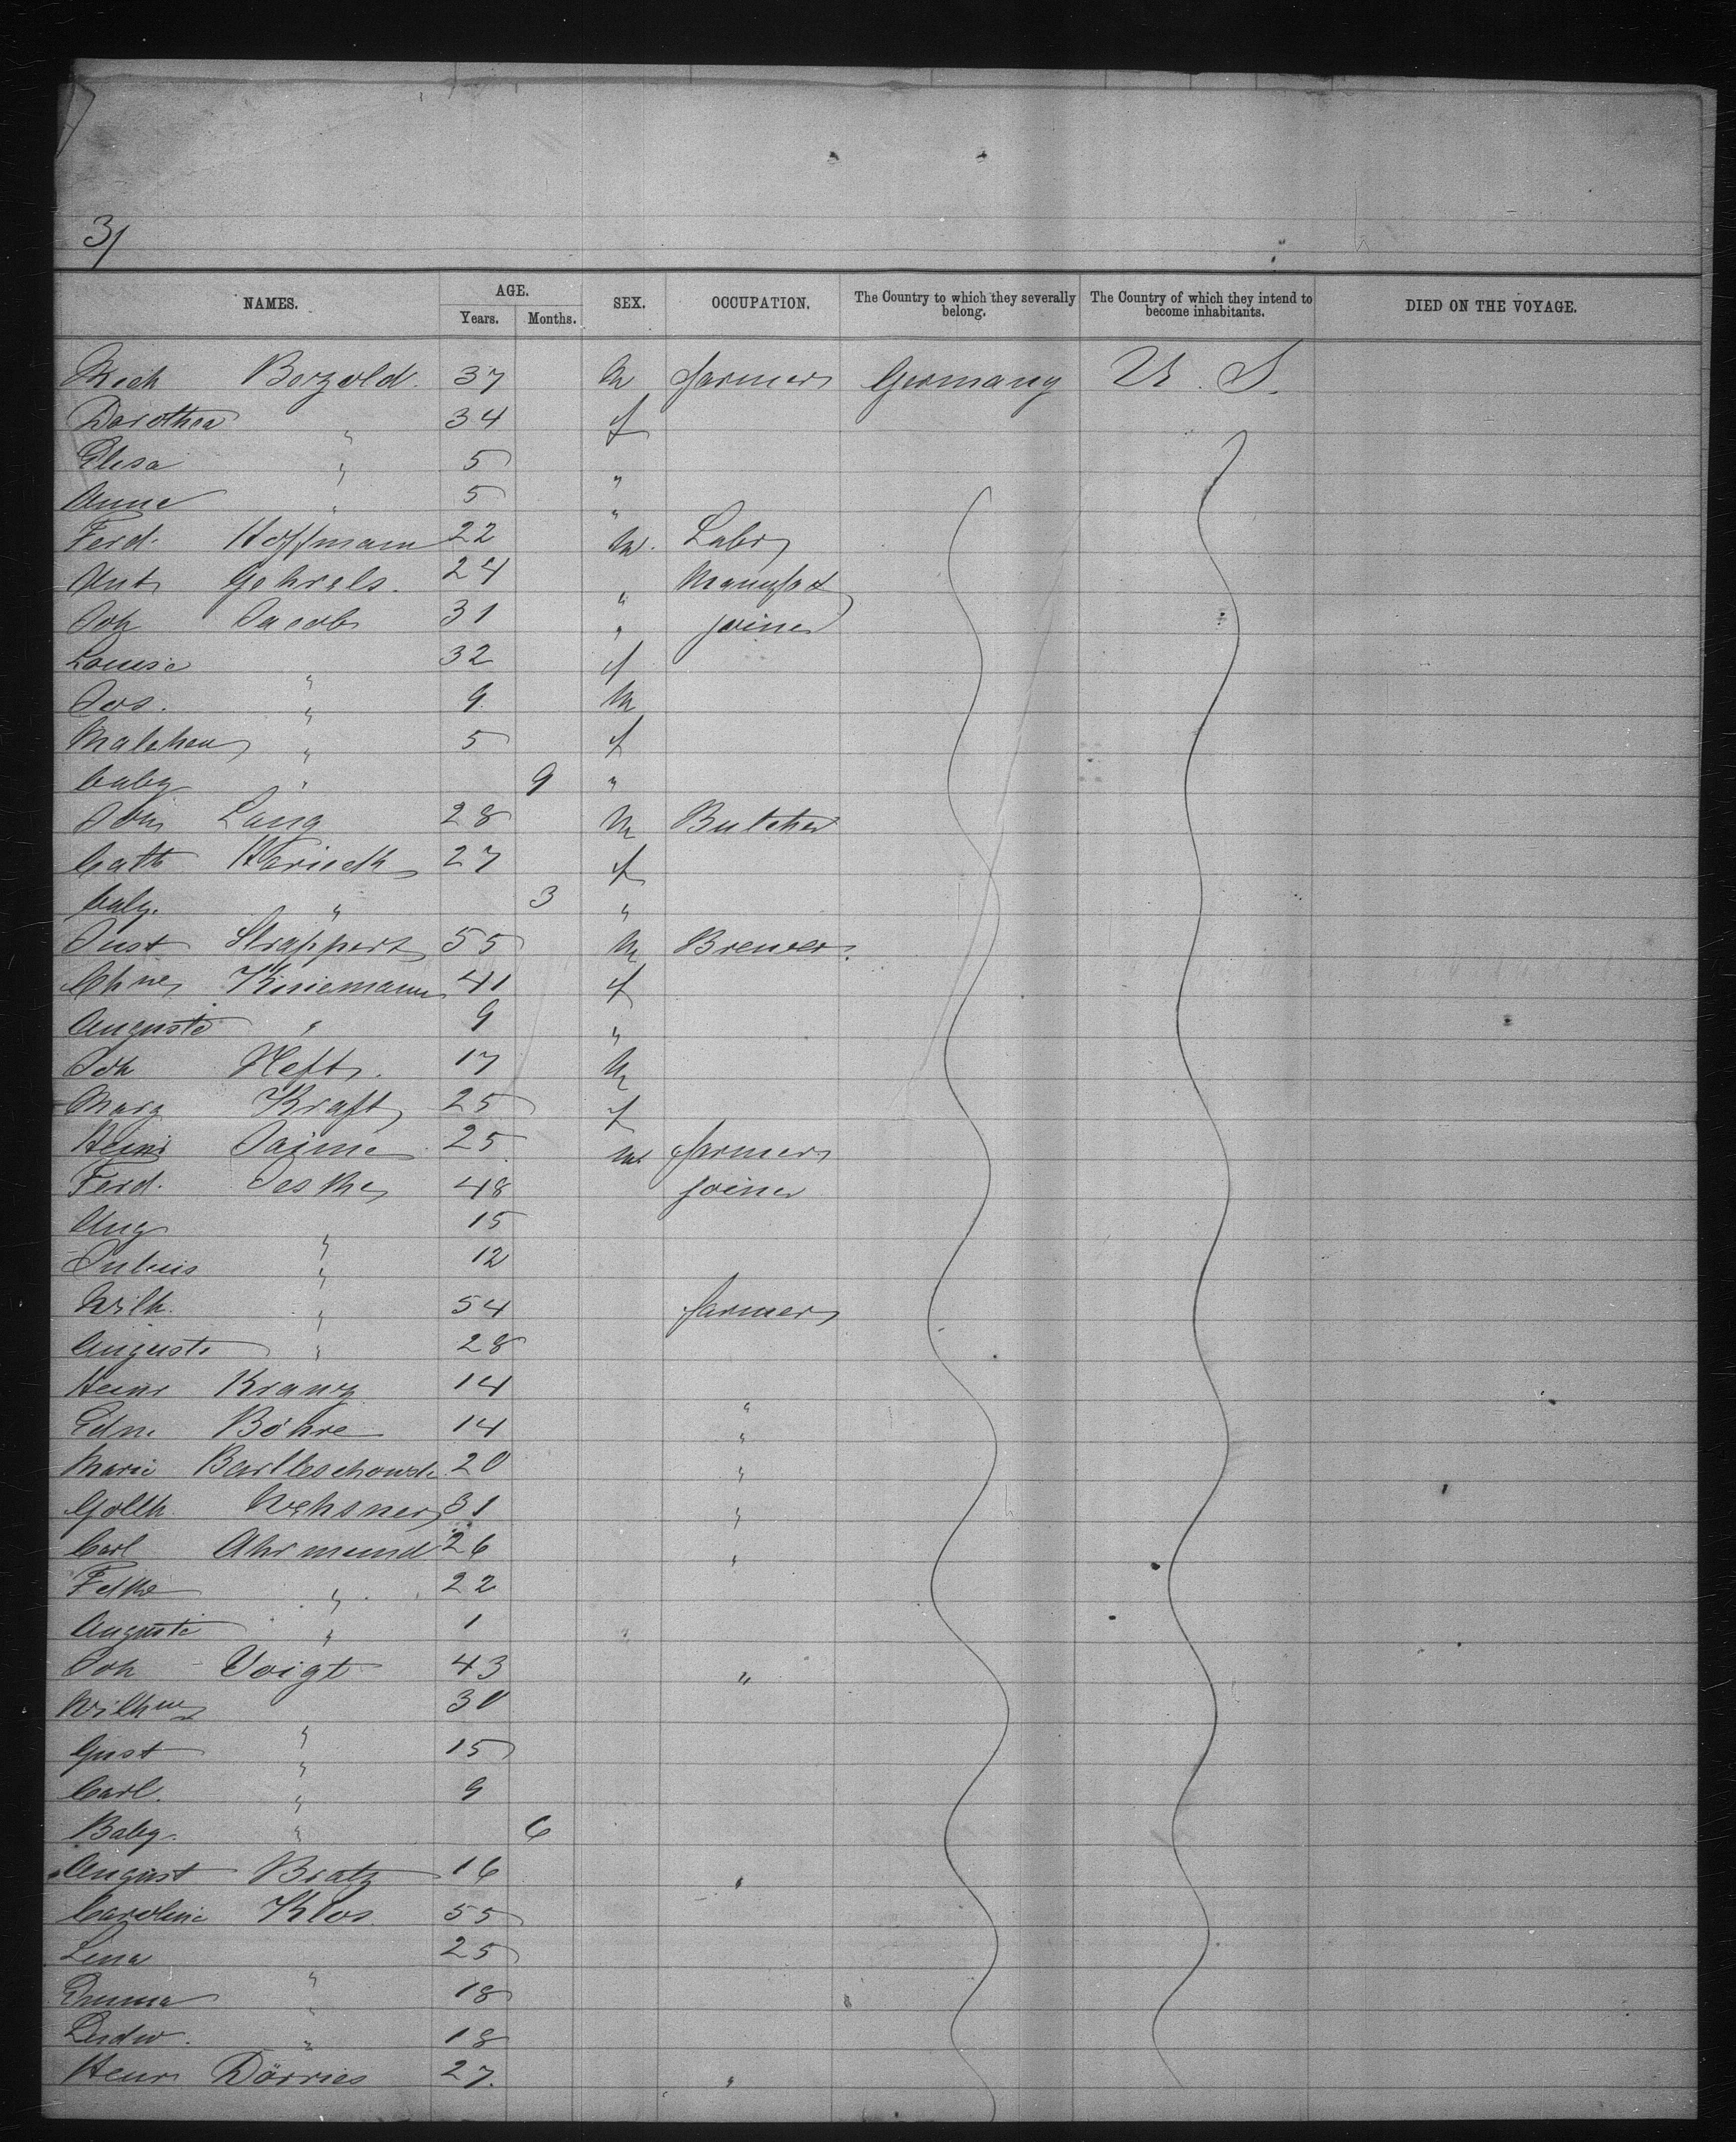 3/
NAMES. AGE. Years. Months. SEX. OCCUPATION. The Country to which they severally belong. The Country of which they intend to become inhabitants. DIED ON THE VOYAGE.
Mich Bozold. 37 M farmer Germany U. S.
Dorothea " 34 f
Elisa " 5 "
Anna " 5 "
Ferd. Hoffmann 22 M. Labr
Ant Gehrels. 24 "
Joh Jacob 31 " joiner
Louise " 32 f
Jos. " 9 M
Malchen " 5 f
baby " 9 "
Joh Lang 28 M Butcher
Cath 27 f
baby. " 3 "
Just Strappert 55 M Brewer.
Chne Kniemann 41 f
Auguste " 9 "
Joh Heft. 17 M
Marg Kraft 25 f
Heinr Jaime 25 M farmer
Ferd. Jeske 48 joiner
Aug " 15
Julius " 12
Wilh. " 54 farmer
Auguste " 28
Heinr Kranz 14 "
Edm. Böhre 14 "
Marie 20 "
Gotth. Wehsner 31 "
Carl Ahrmund 26 "
Fedke " 22
Auguste " 1
Joh Voigt 43 "
Wilhne " 30
Gust " 15
Carl. " 9
Baby. " 6
August Bratz 16 "
Caroline Klos 55
Lina " 25
Emma " 18
Ludw. " 18
Henr Dörries 27. "